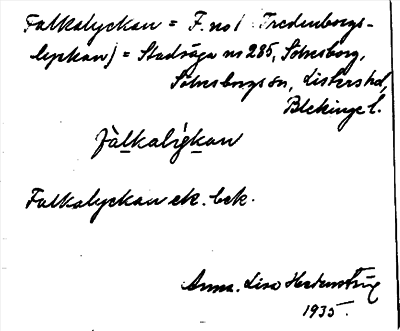 Falkalyckan = F. no 1 Fredenborgs-
lyckan) = Stadsäga nr 285, Sölvesborg,
Sölvesborgs sn, Listers hd,
Blekinge l.
fàlkalýkan
Falkalyckan ek. bek.
Anna-Lisa
1935.